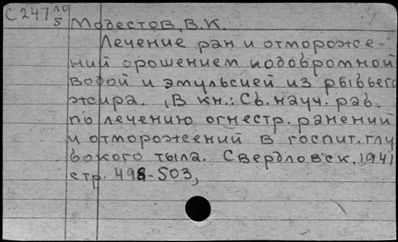 С247 10/5 Модестов, В.К.
Лечение ран и отмороже-
ний орошением иодобромной
водой и эмульсией из рыбьего
жира. , В кн.: Сб. науч. раб.
по лечению огнестр. ранений
и отморожений в госпит. глу
бокого тыла. Свердловск, 1941
стр. 498-503,